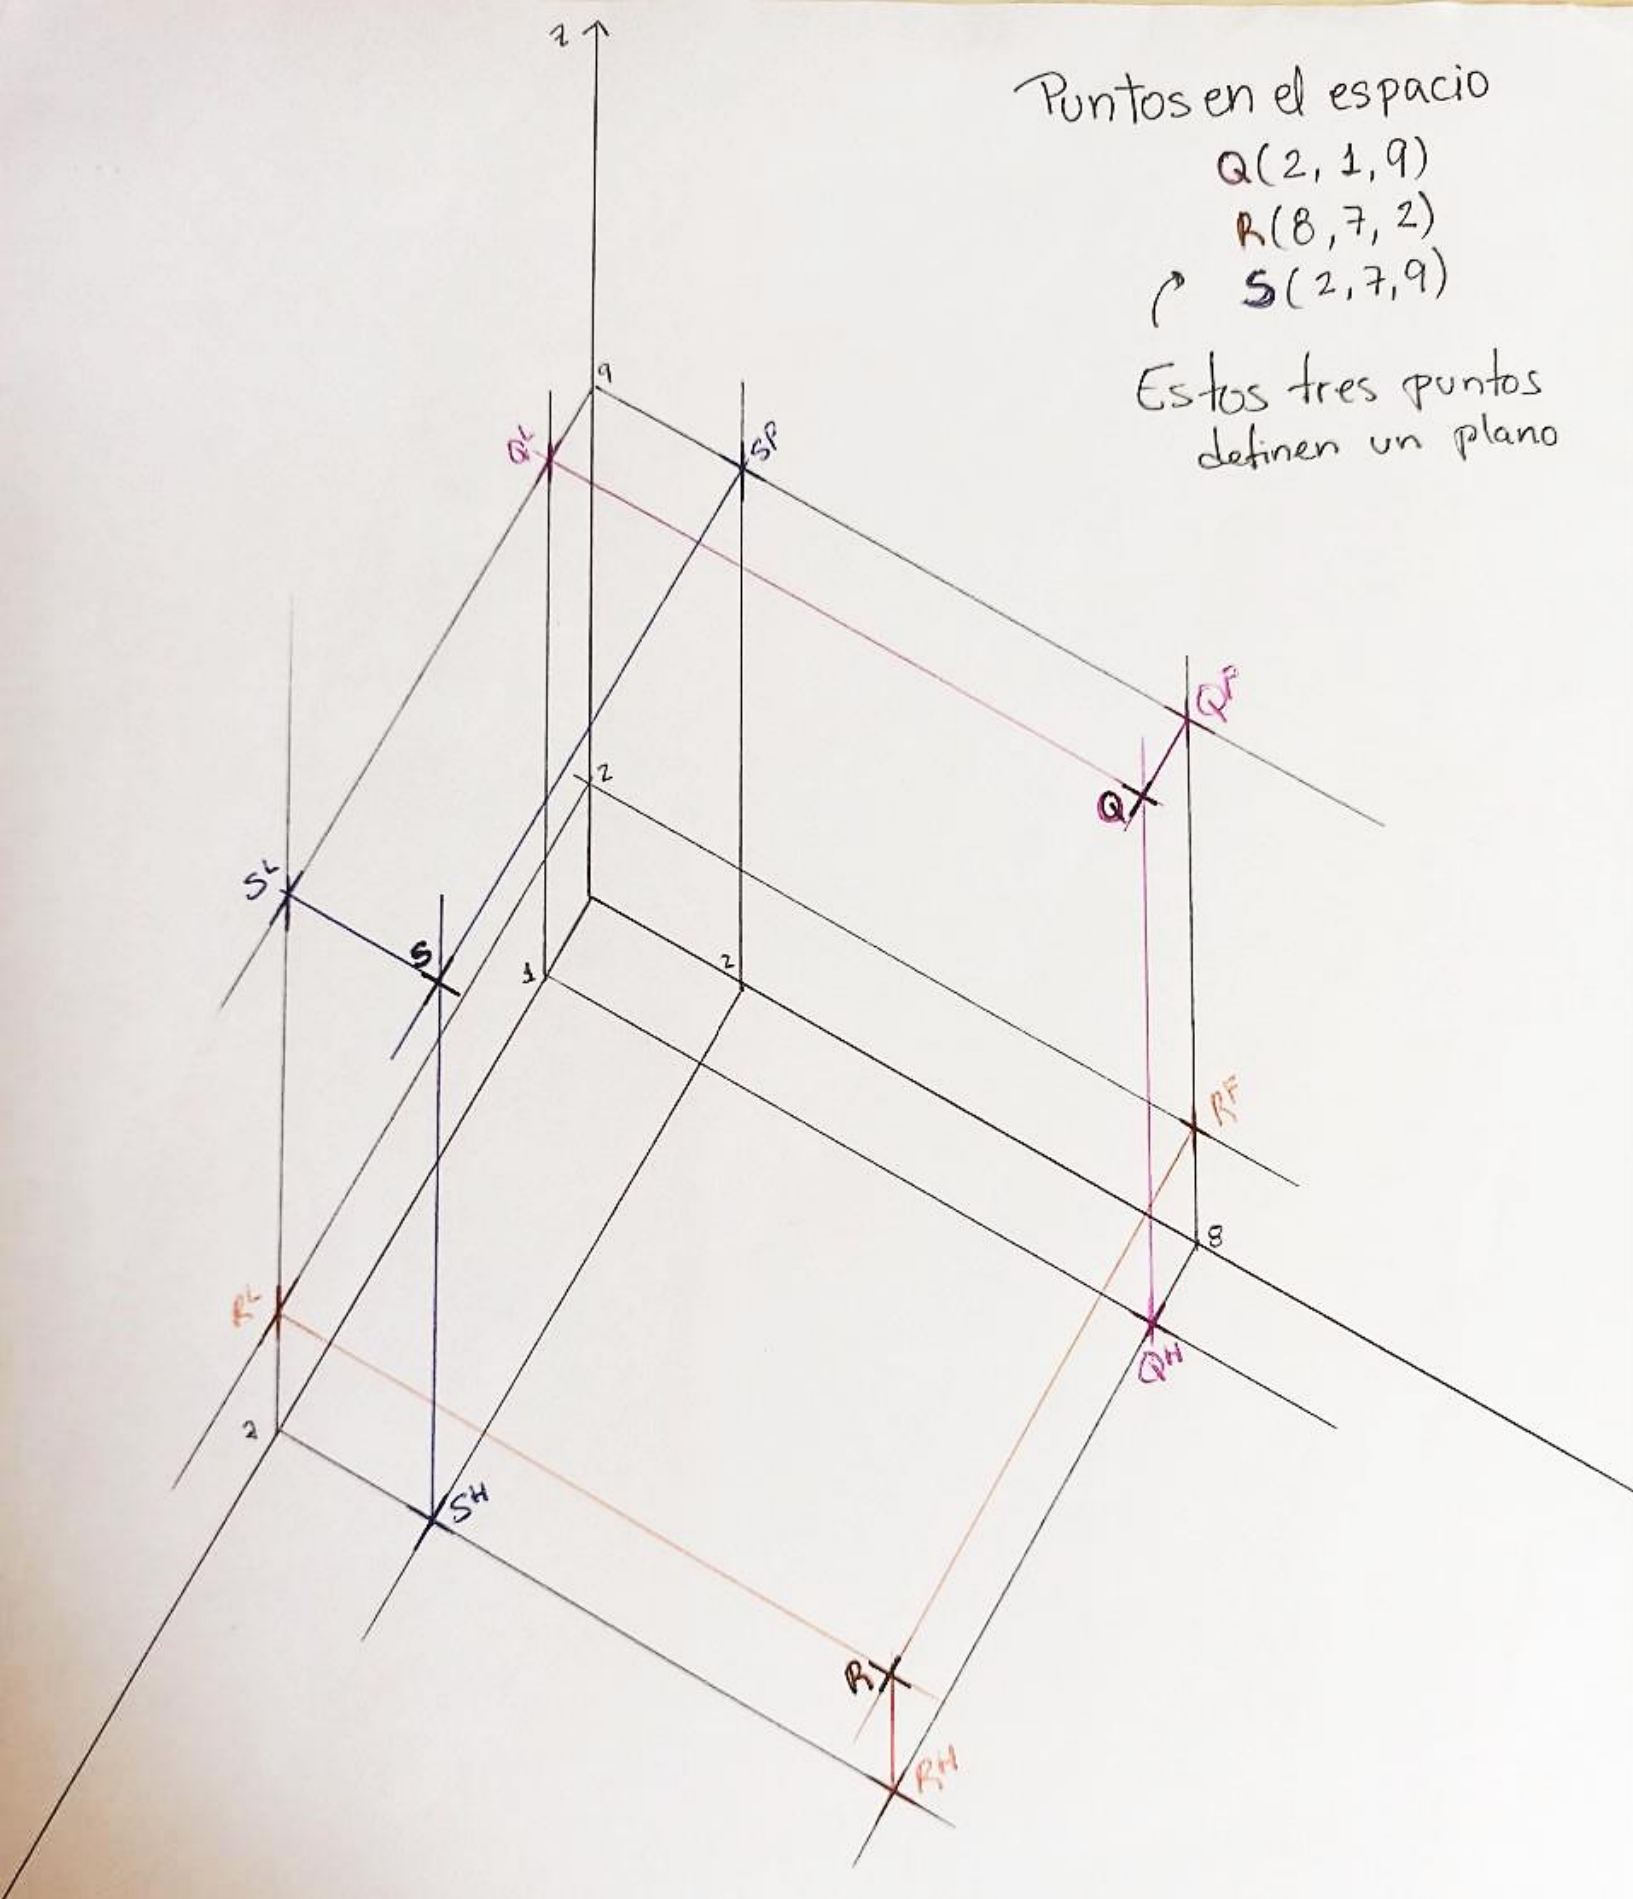 z
Puntos en el espacio
Q(2, 1, 9)
R(8, 7, 2)
S(2, 7, 9)
Estos tres puntos
definen un plano
9
Qᴸ
Sᶠ
Qᶠ
2
Q
Sᴸ
S
1
2
Rᶠ
8
Rᴸ
Qᴴ
2
Sᴴ
R
Rᴴ